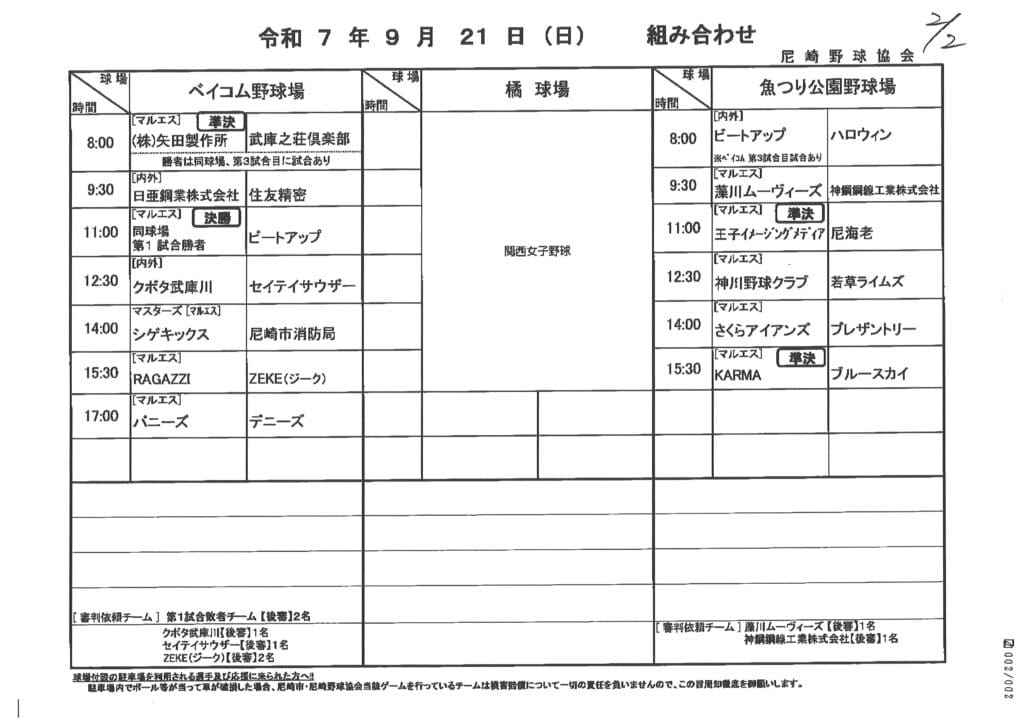 令和 7 年 9 月 21 日 (日) 組み合わせ
2/2
尼崎野球協会
球場
時間
ベイコム野球場
8:00
[マルエス] 準決
(株)矢田製作所 武庫之荘倶楽部
勝者は同球場、第3試合目に試合あり
9:30
[内外]
日亜鋼業株式会社 住友精密
11:00
[マルエス] 決勝
同球場
第1 試合勝者 ビートアップ
12:30
[内外]
クボタ武庫川 セイテイサウザー
14:00
マスターズ [マルエス]
シゲキックス 尼崎市消防局
15:30
[マルエス]
RAGAZZI ZEKE(ジーク)
17:00
[マルエス]
バニーズ デニーズ
[審判依頼チーム] 第1試合敗者チーム【後審】2名
クボタ武庫川【後審】1名
セイテイサウザー【後審】1名
ZEKE(ジーク)【後審】2名
球場
時間
橘 球場
関西女子野球
球場
時間
魚つり公園野球場
8:00
[内外]
ビートアップ ハロウィン
※ベイコム 第3試合目試合あり
9:30
[マルエス]
藻川ムーヴィーズ 神鋼鋼線工業株式会社
11:00
[マルエス] 準決
王子イメージングメディア 尼海老
12:30
[マルエス]
神川野球クラブ 若草ライムズ
14:00
[マルエス]
さくらアイアンズ プレザントリー
15:30
[マルエス] 準決
KARMA ブルースカイ
[審判依頼チーム] 藻川ムーヴィーズ【後審】1名
神鋼鋼線工業株式会社【後審】1名
球場付設の駐車場を利用される選手及び応援に来られた方へ!!
駐車場内でボール等が当って車が破損した場合、尼崎市・尼崎野球協会当該ゲームを行っているチームは損害賠償について一切の責任を負いませんので、この旨周知徹底を御願いします。
002/002